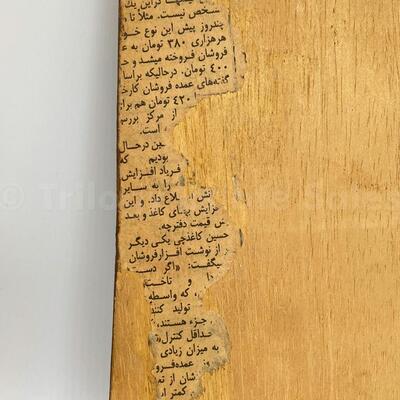 شخص نیست. مثلا تا
چندروز پیش این نوع خو
هرهزاری ۳۸۰ تومان به ع
فروشان فروخته میشد و ح
۴۰۰ تومان، درحالیکه براسا
گفته‌های عمده فروشان کارخ
۴۲۰ تومان هم برا
از مرکز بررس
است.
درحال
بودیم که
فریاد افزایش
را به سایر
لاع داد. و این
بهای کاغذ و بعد
قیمت دفترچه.
حسین کاغذچی یکی دیگر
از نوشت افزارفروشان
میگفت: «اگر دست
و تاخت
، که واسطه
تولید کنند
جزء هستند،
حداقل کنترل
به میزان زیادی
عمده‌فرو
شان از ته
کمتر
© Tril